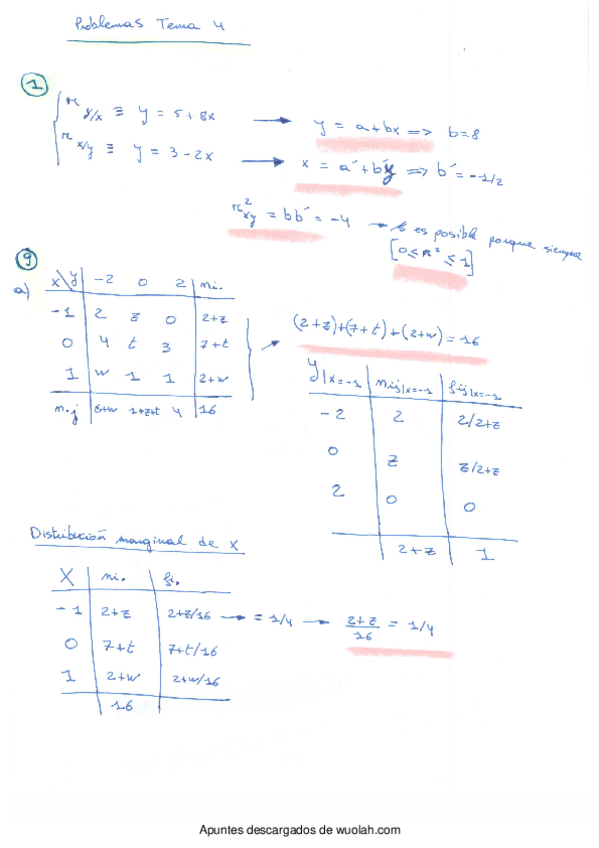 Problemas Tema 4
1
r y/x ≡ y = 5+8x → y = a+bx => b=8
r x/y ≡ y = 3-2x → x = a´+b´y => b´= -1/2
r²xy = bb´ = -4 → es posible porque siempre
[0≤ r² ≤ 1]
9
a) x\y -2 0 2 ni.
-1 2 z 0 2+z
0 4 t 3 7+t
1 w 1 1 2+w
n.j 6+w 1+z+t 4 16
(2+z)+(7+t)+(2+w) = 16
y|x=-1 nij|x=-1 fij|x=-1
-2 2 2/2+z
0 z z/2+z
2 0 0
2+z 1
Distribución marginal de x
X ni. fi.
-1 2+z 2+z/16 → = 1/4 → 2+z/16 = 1/4
0 7+t 7+t/16
1 2+w 2+w/16
16
Apuntes descargados de wuolah.com